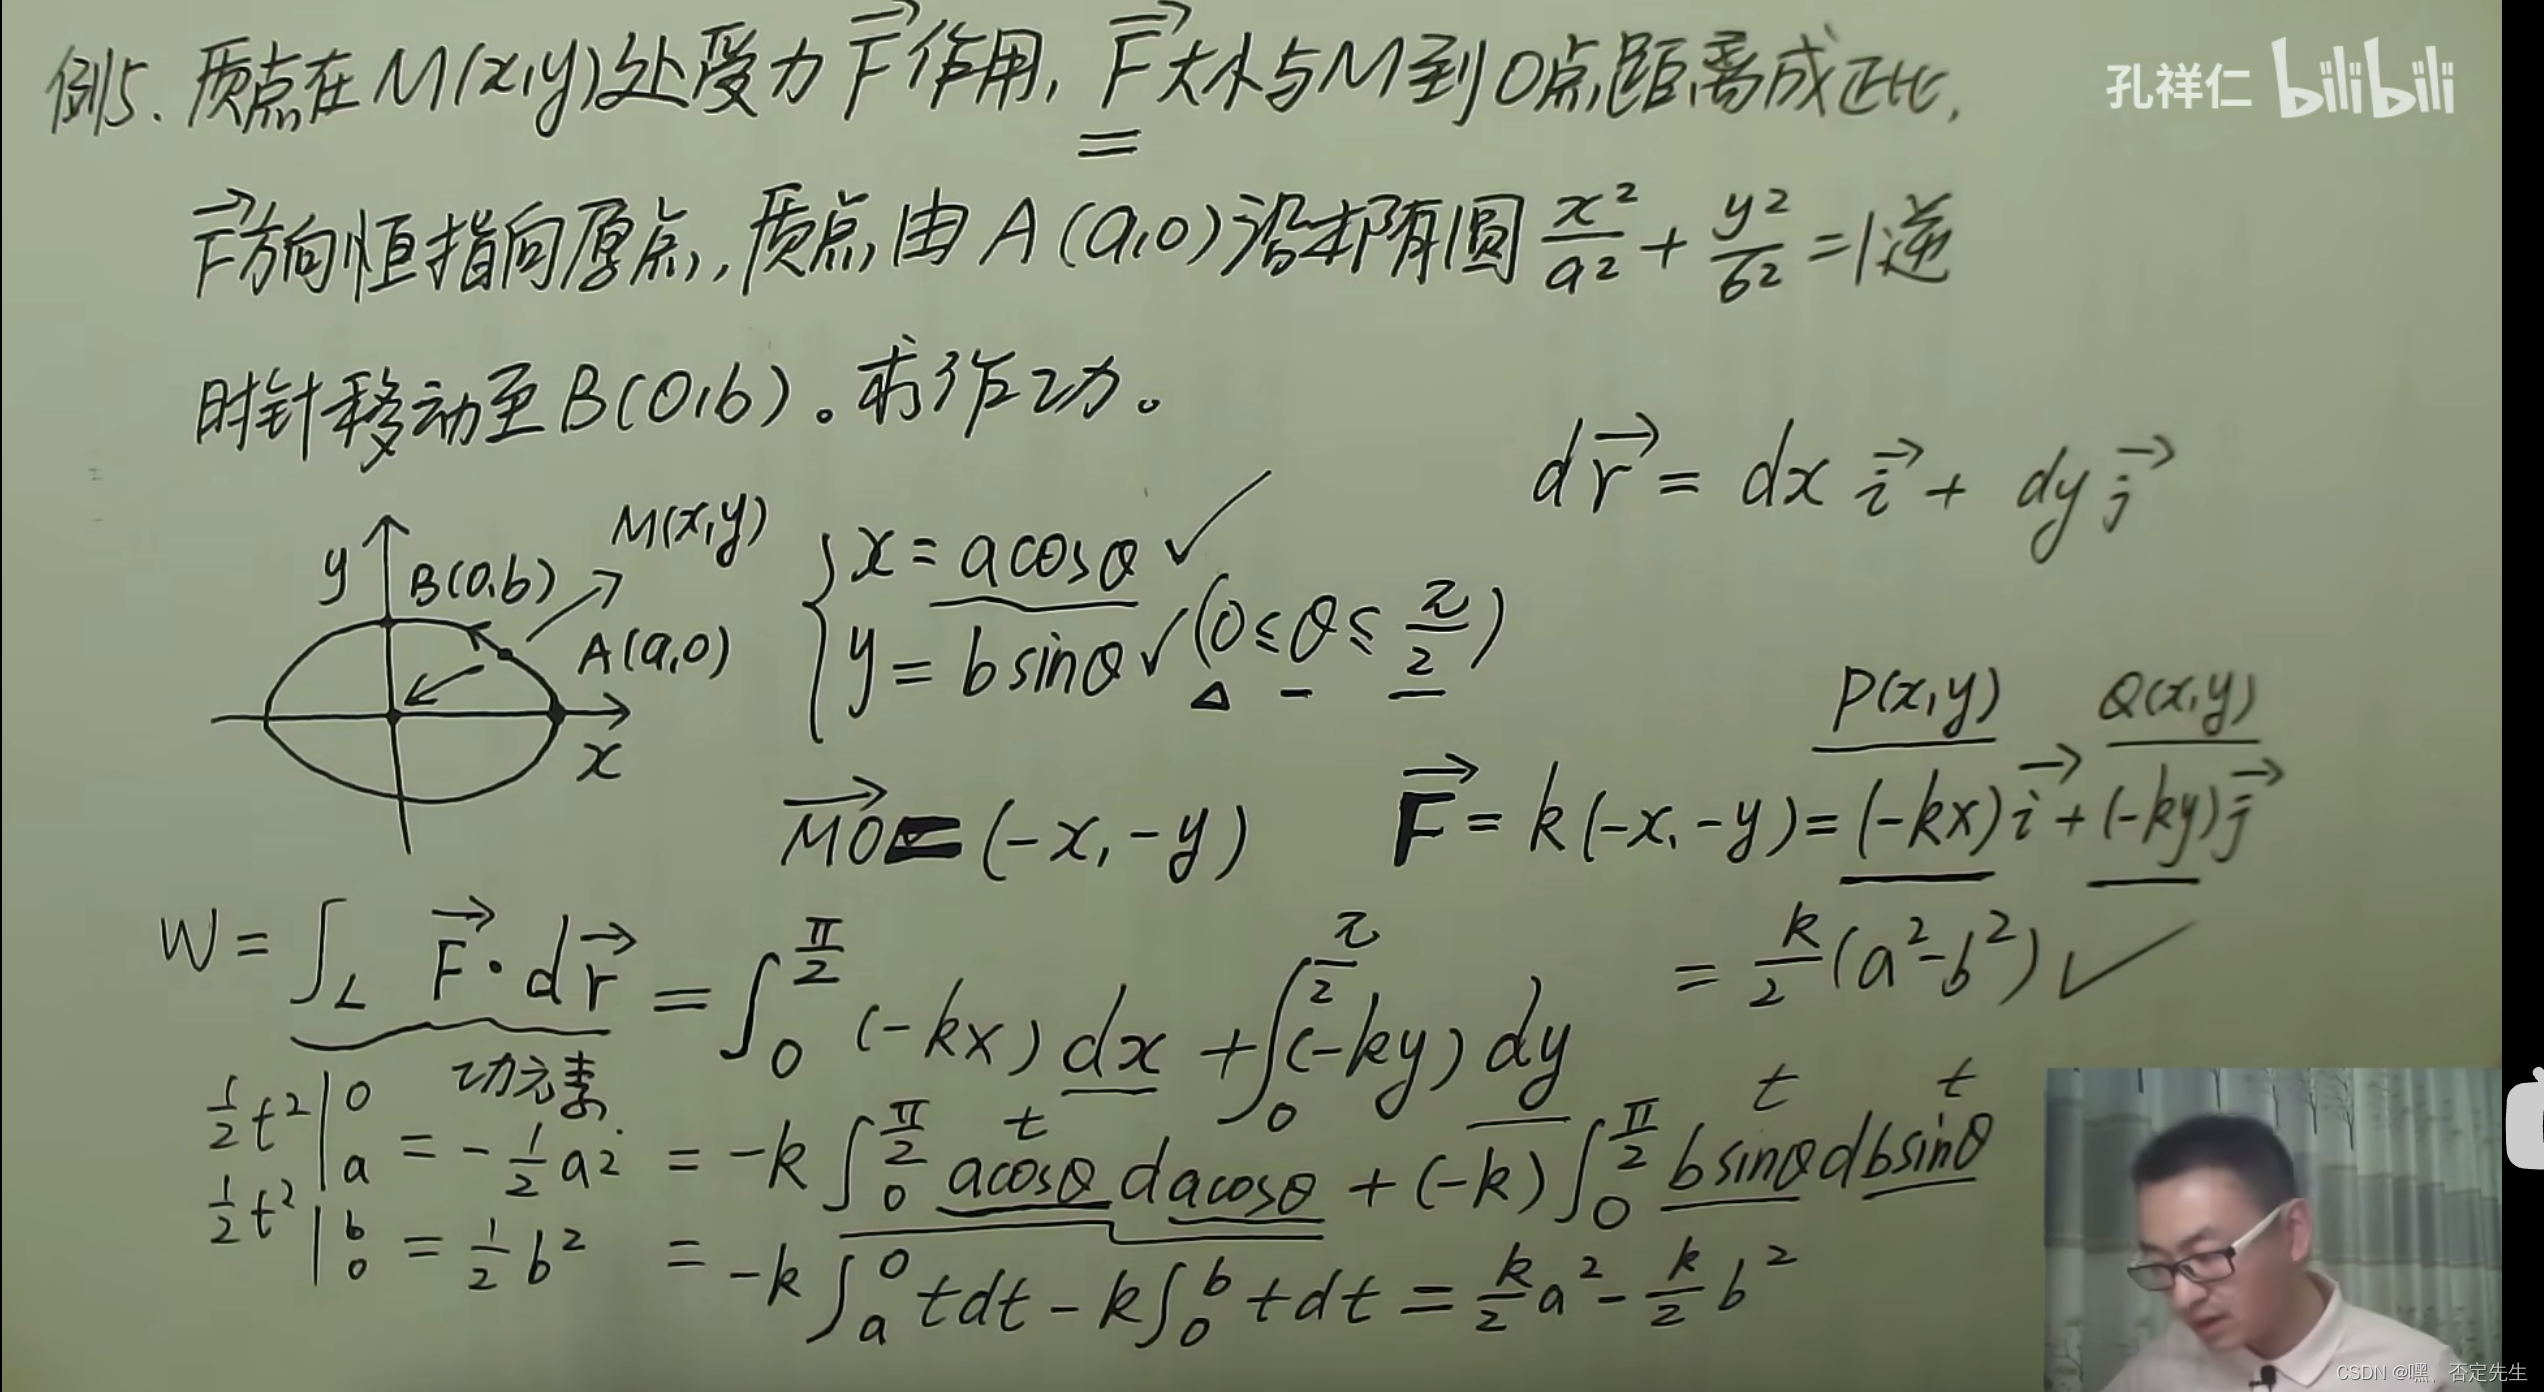 例5. 质点在M(x,y)处受力F⃗作用, F⃗大小与M到O点距离成正比,
孔祥仁 bilibili
F⃗方向恒指向原点,质点由A(a,0)沿椭圆 x²/a² + y²/b² =1逆
时针移动至B(0,b)。求作功。
dr⃗ = dx i⃗ + dy j⃗
y B(0,b) M(x,y)
A(a,0)
x
{ x = acosθ ✓
y = bsinθ ✓ (0≤θ≤π/2)
P(x,y) Q(x,y)
MO⃗ = (-x,-y)
F⃗ = k(-x,-y) = (-kx)i⃗ + (-ky)j⃗
W = ∫_L F⃗·dr⃗ = ∫₀^{π/2} (-kx)dx + ∫₀^{π/2} (-ky)dy
= k/2 (a²-b²) ✓
功元素
t t t
½t² |ₐ⁰ = -½a²
= -k∫₀^{π/2} acosθ dacosθ + (-k)∫₀^{π/2} bsinθ dbsinθ
½t² |₀ᵇ = ½b²
= -k∫ₐ⁰ tdt - k∫₀ᵇ tdt = k/2 a² - k/2 b²
CSDN @嘿、否定先生